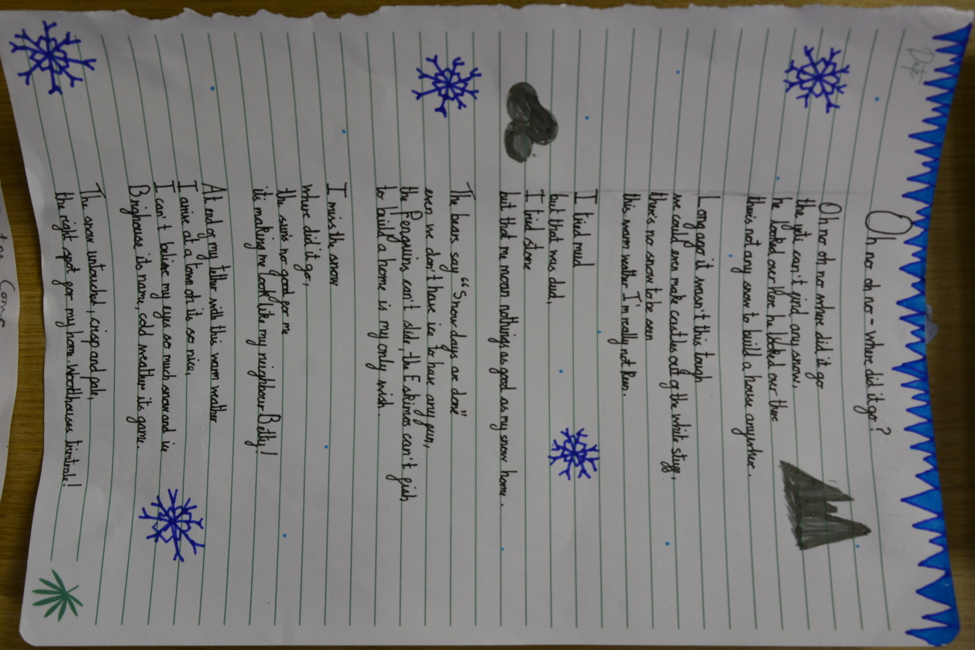 Date
Oh no oh no - where did it go?
Oh no oh no where did it go
the yeti can't find any snow,
he looked over here he looked over there
there's not any snow to build a house anywher.
Long ago it wasn't this tough
we could even make castles out of the white stuff,
there's no snow to be seen
this warm weather I'm really not keen.
I tried mud
but that was dud,
I tried stone
but that me moan nothings as good as my snow home.
The bears say "Snow days are done"
even we don't have ice to have any fun,
the Penguins can't slide, the Eskimos can't fish
to build a home is my only wish.
I miss the snow
where did it go,
the sun's no good for me
its making me look like my neighbour Betty!
At end of my tether with this warm weather
I arrive at a town oh its so nice,
I can't believe my eyes so much snow and ice
Brighouse its name, cold weather its game.
The snow untouched, crisp and pale,
the right spot for my home. Woodhouses